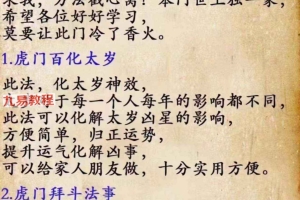 希望各位好好学习,
莫要让此门冷了香火。
1.虎门百化太岁
此法,化太岁神效,
于每一个人每年的影响都不同,
此法可以化解太岁凶星的影响,
方便简单,归正运势,
提升运气化解凶事,
可以给家人朋友做,十分实用方便。
2.虎门拜斗法事
九易教程